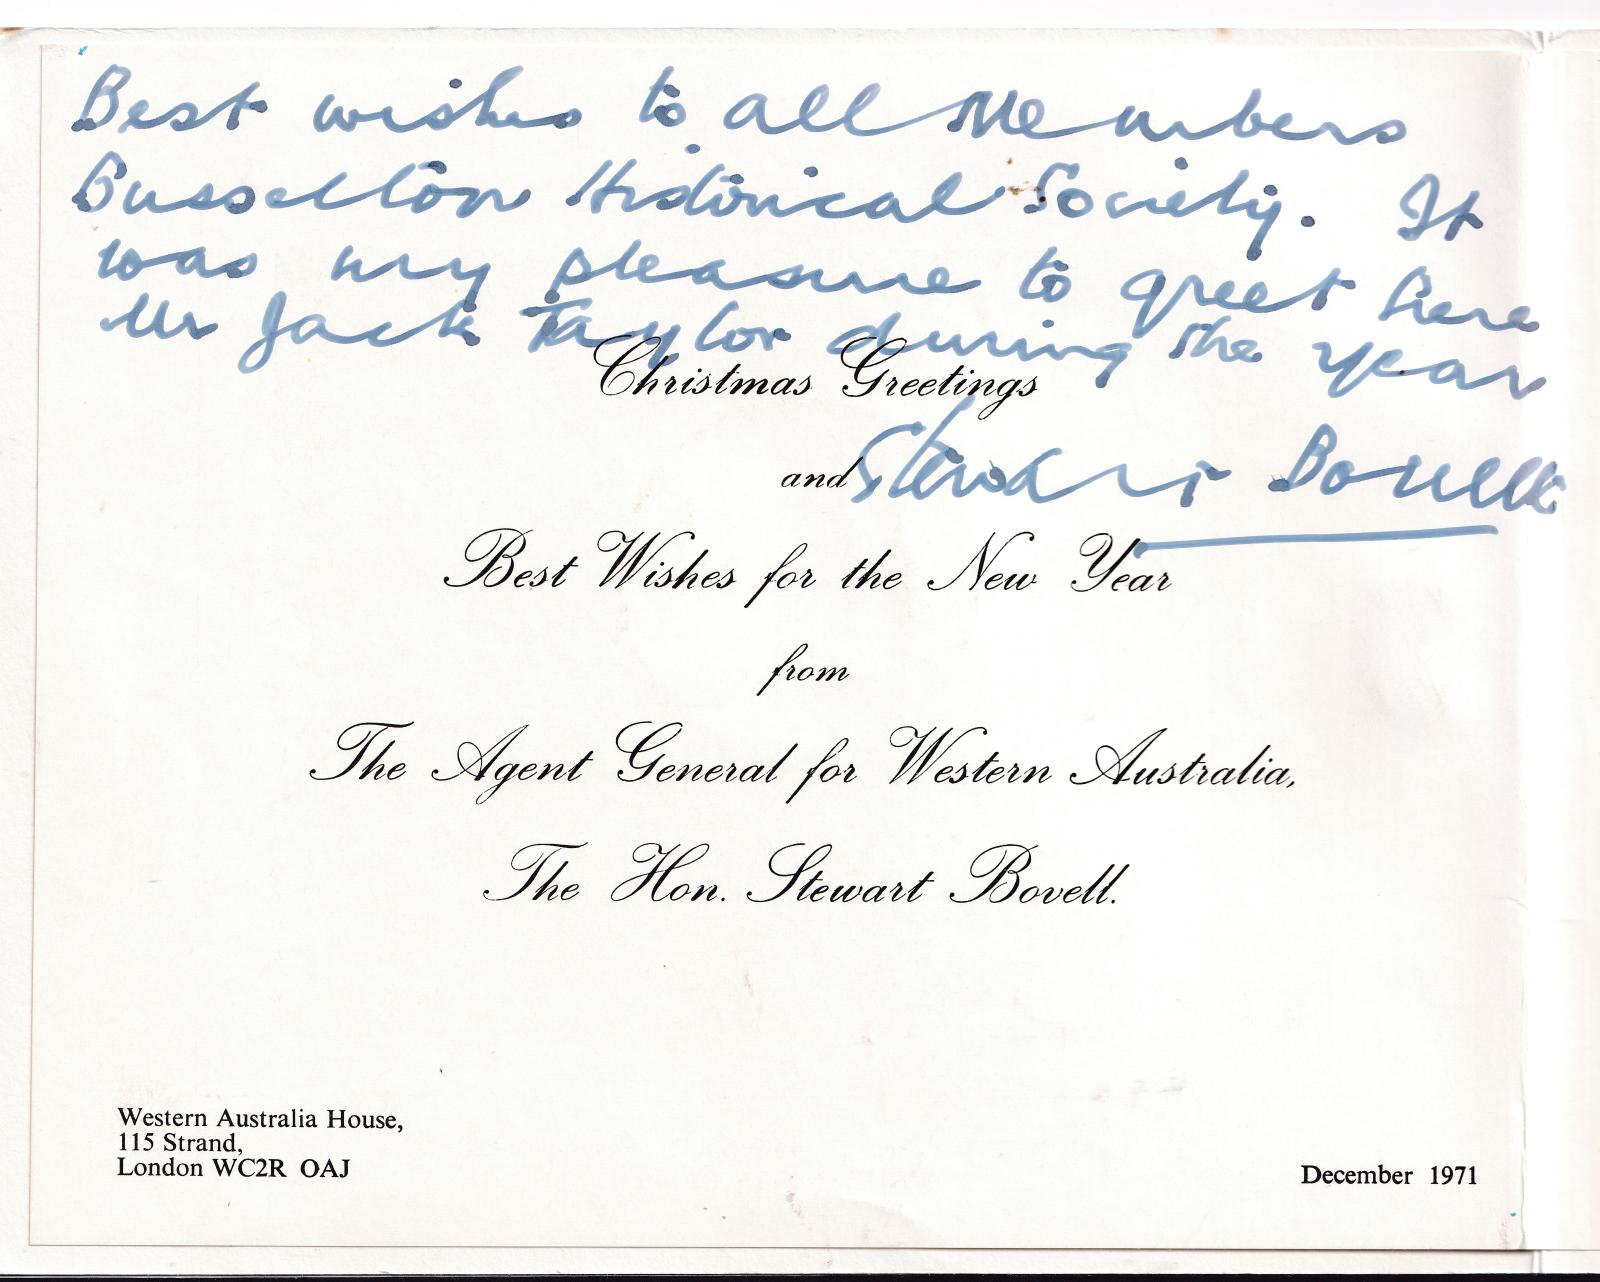 Best wishes to all Members
Busselton Historical Society. It
was my pleasure to greet here
Mr Jack Taylor during the year
Christmas Greetings
and Stewart Bovell
Best Wishes for the New Year
from
The Agent General for Western Australia,
The Hon. Stewart Bovell.
Western Australia House,
115 Strand,
London WC2R OAJ
December 1971